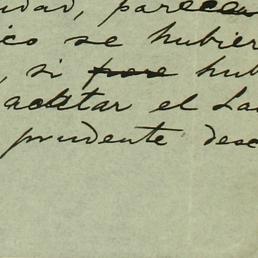 idad, parecen
ico se hubier
, si fore hub
acatar el La
prudente desc